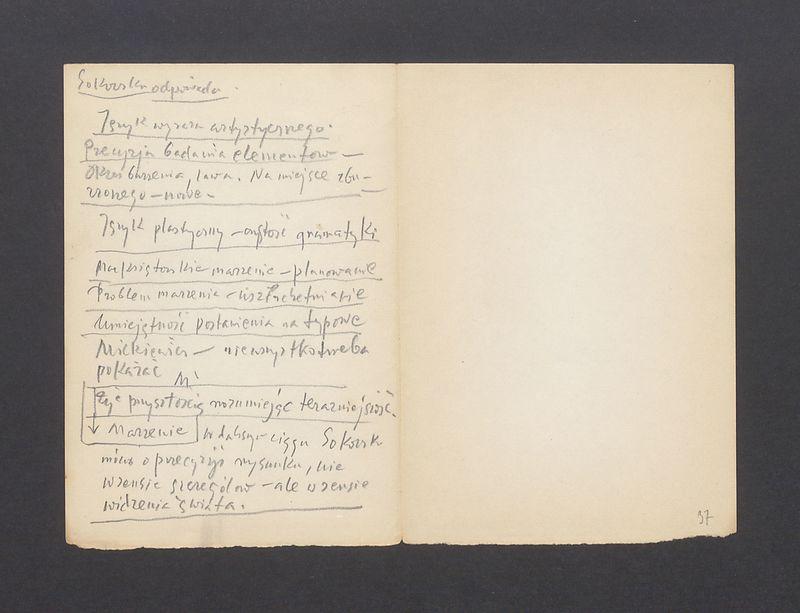 Sokorski odpowiada.
Język wyrazu artystycznego.
Precyzja badania elementów —
Okres burzenia, lawa. Na miejsce zbu-
rzonego — nowe.
Język plastyczny — gramatyki
marzenie — planowanie
Problem marzenia — uszlachetnianie
Umiejętność postawienia na typowe
Mickiewicz — nie wszystko trzeba
pokazać
Żyć przyszłością rozumiejąc teraźniejszość.
Marzenie w dalszym ciągu Sokorsk
mówi o precyzji rysunku, nie
w sensie szczegółów — ale w sensie
widzenia świata.
37